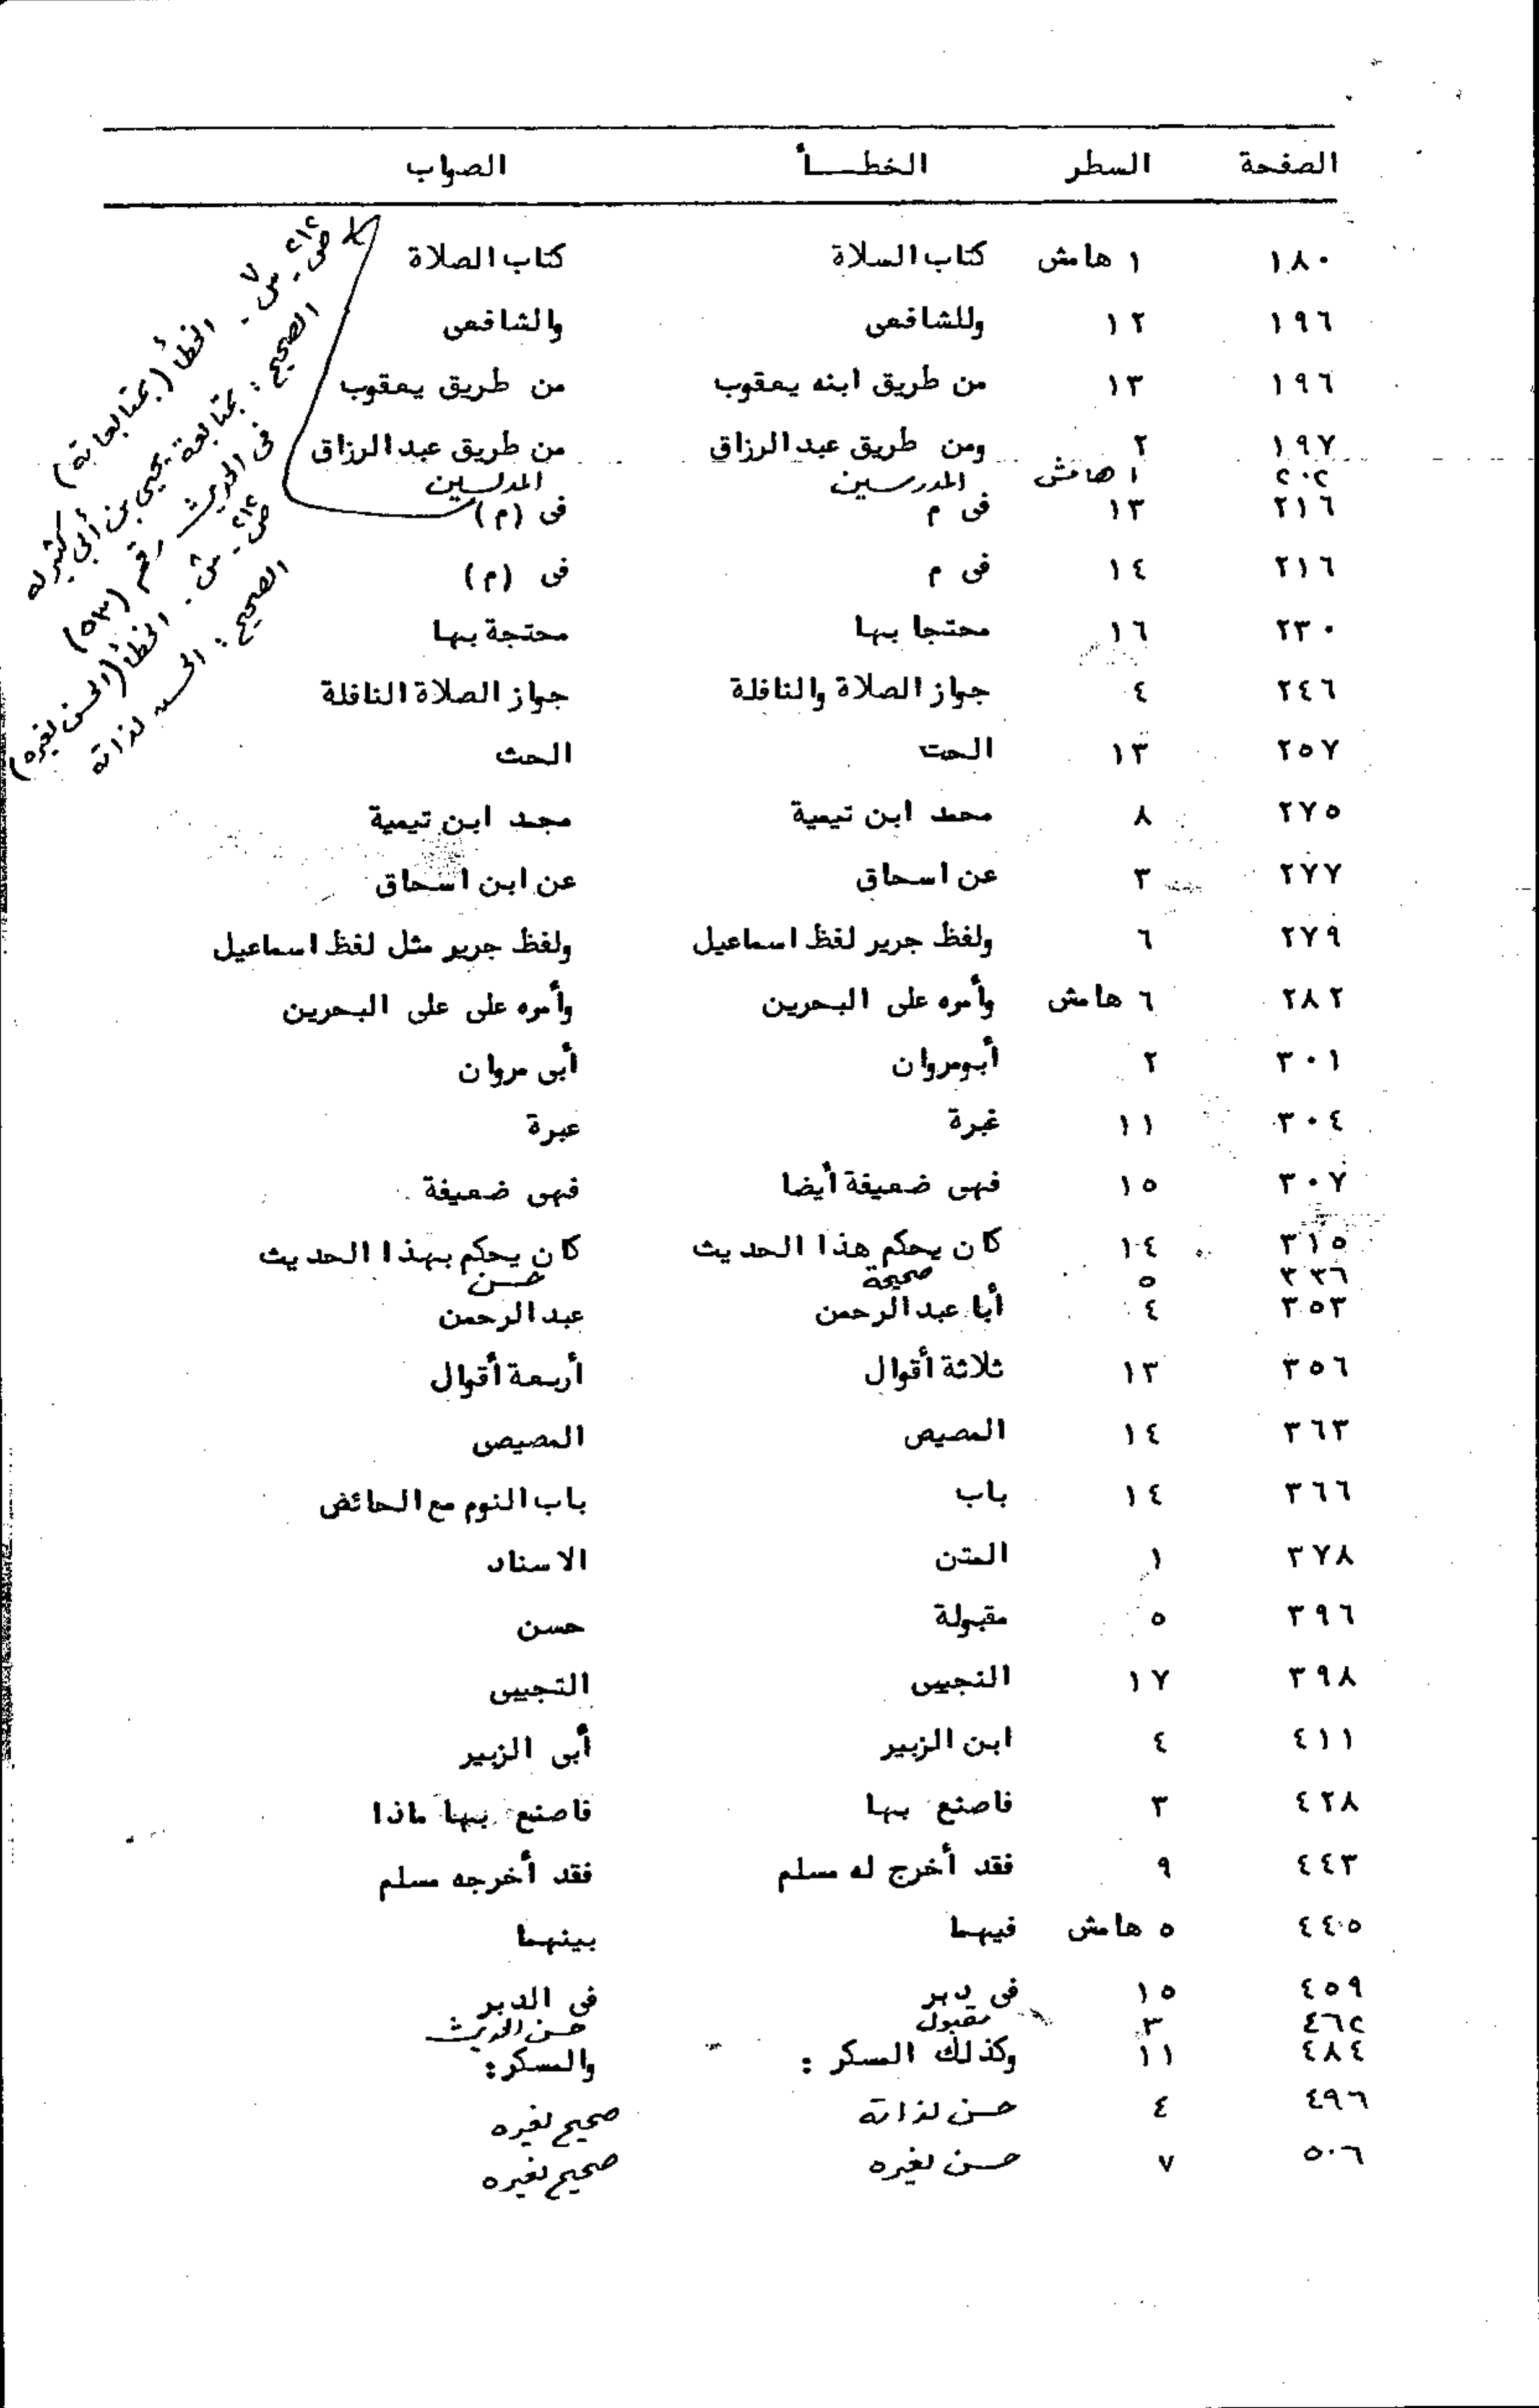 الصفحة السطر الخطــأ الصواب
١٨٠ ١ هامش كتاب السلاة كتاب الصلاة
١٩٦ ١٢ وللشافعى والشافعى
١٩٦ ١٣ من طريق ابنه يعقوب من طريق يعقوب
١٩٧ ٢ ومن طريق عبد الرزاق من طريق عبد الرزاق
٢٠٢ ١ هامش المدرسين المدلسين
٢١٦ ١٣ فى م فى (م)
٢١٦ ١٤ فى م فى (م)
٢٣٠ ١٦ محتجا بها محتجة بها
٢٤٦ ٤ جواز الصلاة والنافلة جواز الصلاة النافلة
٢٥٧ ١٣ الحت الحث
٢٧٥ ٨ محمد ابن تيمية مجد ابن تيمية
٢٧٧ ٣ عن اسحاق عن ابن اسحاق
٢٧٩ ٦ ولفظ جرير لفظ اسماعيل ولفظ جرير مثل لفظ اسماعيل
٢٨٢ ٦ هامش وأمره على البحرين وأمره على على البحرين
٣٠١ ٢ أبومروان أبى مروان
٣٠٤ ١١ غبرة عبرة
٣٠٧ ١٥ فهى ضعيفة أيضا فهى ضعيفة
٣١٥ ١٤ كان يحكم هذا الحديث كان يحكم بهذا الحديث
٣٣٦ ٥ صحيحة حسن
٣٥٣ ٤ أبا عبد الرحمن عبد الرحمن
٣٥٦ ١٣ ثلاثة أقوال أربعة أقوال
٣٦٣ ١٤ المصيص المصيصى
٣٦٦ ١٤ باب باب النوم مع الحائض
٣٧٨ ١ المتن الاسناد
٣٩٦ ٥ مقبولة حسن
٣٩٨ ١٧ النجيبى التجيبى
٤١١ ٤ ابن الزبير أبى الزبير
٤٢٨ ٣ فاصنع بها فاصنع بها ماذا
٤٤٣ ٩ فقد أخرج له مسلم فقد أخرجه مسلم
٤٤٥ ٥ هامش فيهما بينهما
٤٥٩ ١٥ فى دبر فى الدبر
٤٦٢ ٣ مقبول حسن الحديث
٤٨٤ ١١ وكذلك السكر : والسكر :
٤٩٦ ٤ حسن لذاته صحيح لغيره
٥٠٦ ٧ حسن لغيره صحيح لغيره
ص ٢١٢ - س ٧ - الخطأ (بمتابعاته)
الصحيح : بمتابعة يحيى بن أبي كثير له
فى الحديث رقم (٥٣)
ص ٢١٢ - س - الخطأ (الحسن لغيره)
الصحيح : الحسن لذاته